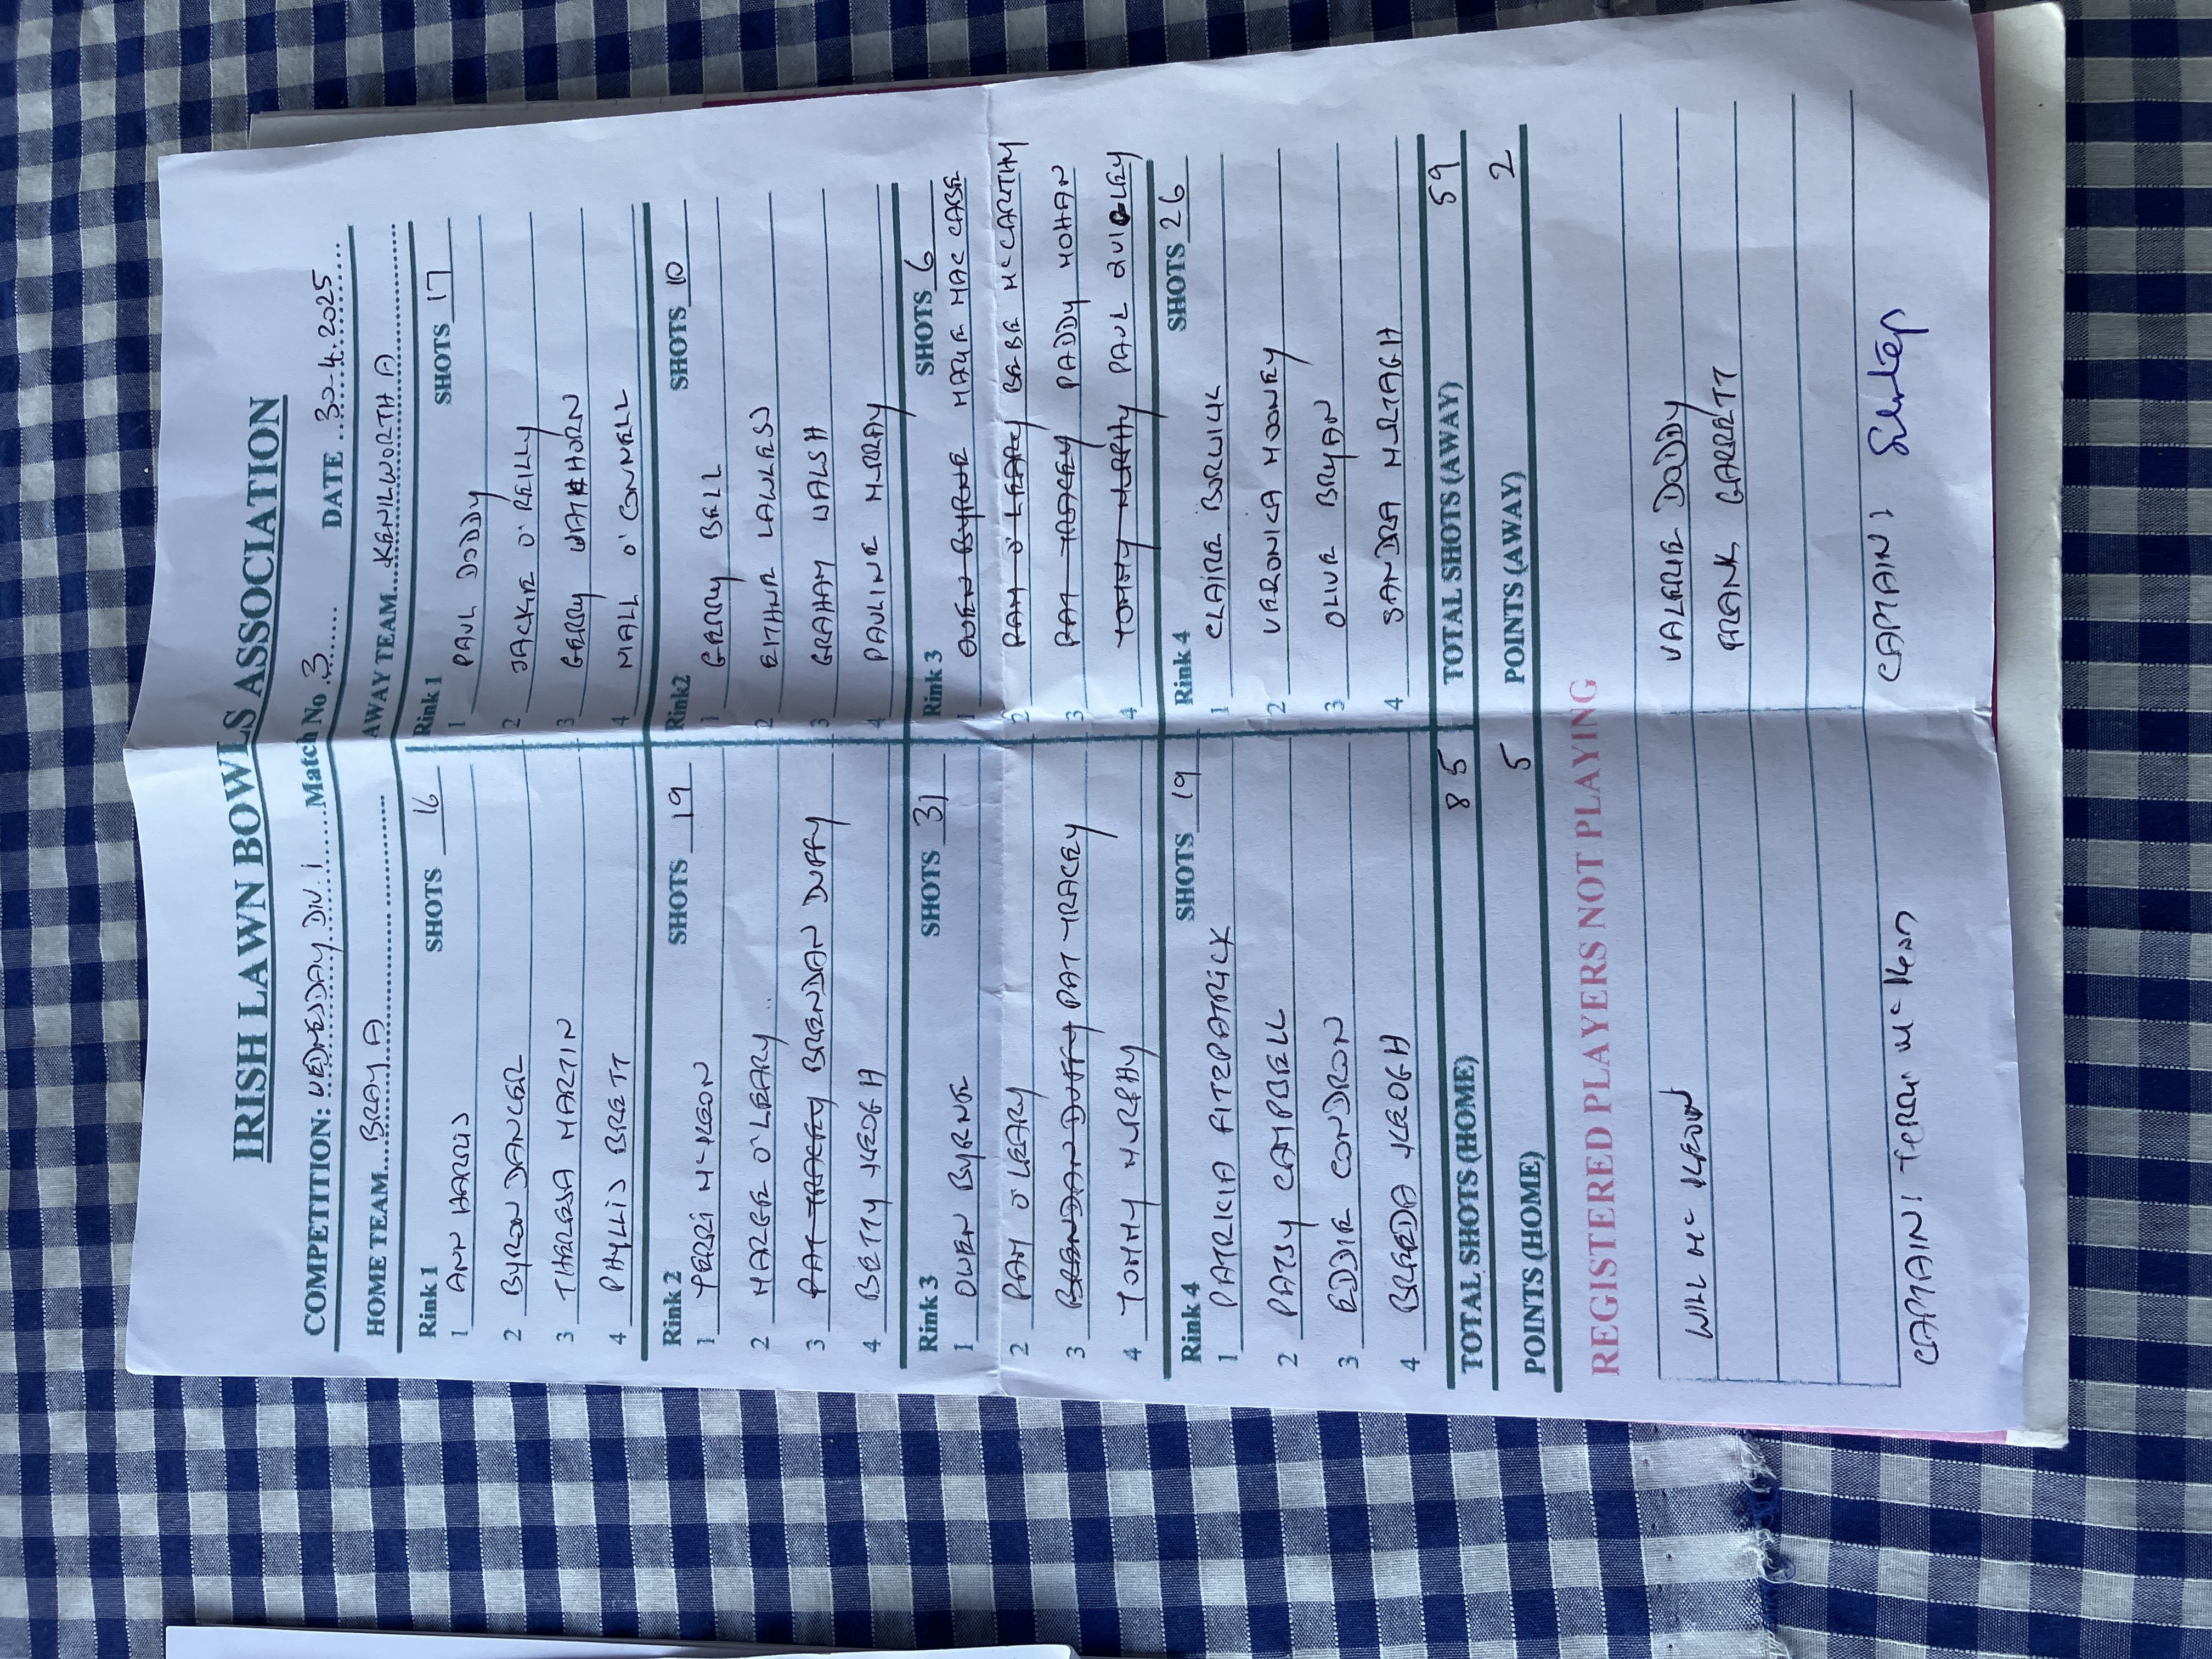 IRISH LAWN BOWLS ASSOCIATION
COMPETITION: WEDNESDAY DIV 1 Match No 3 DATE 30-4-2025
HOME TEAM BRAY A AWAY TEAM KENILWORTH A
Rink 1 SHOTS 16 Rink 1 SHOTS 17
1 ANN HARRIS 1 PAUL DODDY
2 BYRON DANCER 2 JACKIE O'REILLY
3 THERESA MARTIN 3 GERRY WATHORN
4 PHYLLIS BRETT 4 NIALL O'CONNELL
Rink 2 SHOTS 19 Rink2 SHOTS 10
1 TERRI McKEON 1 GERRY BELL
2 MARGE O'LEARY 2 EITHNE LAWLESS
3 PAT TRACEY BRENDAN DUFFY 3 GRAHAM WALSH
4 BETTY KEOGH 4 PAULINE MURRAY
Rink 3 SHOTS 31 Rink 3 SHOTS 6
1 OWEN BYRNE 1 OWEN BYRNE MARIE MAC CABE
2 PAM O'LEARY 2 PAM O'LEARY BEBE McCARTHY
3 BRENDAN DUFFY PAT TRACEY 3 PAT TRACEY PADDY MOHAN
4 TOMMY MURPHY 4 TOMMY MURPHY PAUL QUIGLEY
Rink 4 SHOTS 19 Rink 4 SHOTS 26
1 PATRICIA FITZPATRICK 1 CLAIRE BORWICK
2 PATSY CAMPBELL 2 VERONICA MOONEY
3 EDDIE CONDRON 3 OLIVE BRYAN
4 BREEDA KEOGH 4 SANDRA MURTAGH
TOTAL SHOTS (HOME) 85 TOTAL SHOTS (AWAY) 59
POINTS (HOME) 5 POINTS (AWAY) 2
REGISTERED PLAYERS NOT PLAYING
WILL McKEOWN VALERIE DODDY
FRANK GARRETT
CAPTAIN: Terri McKeon CAPTAIN: